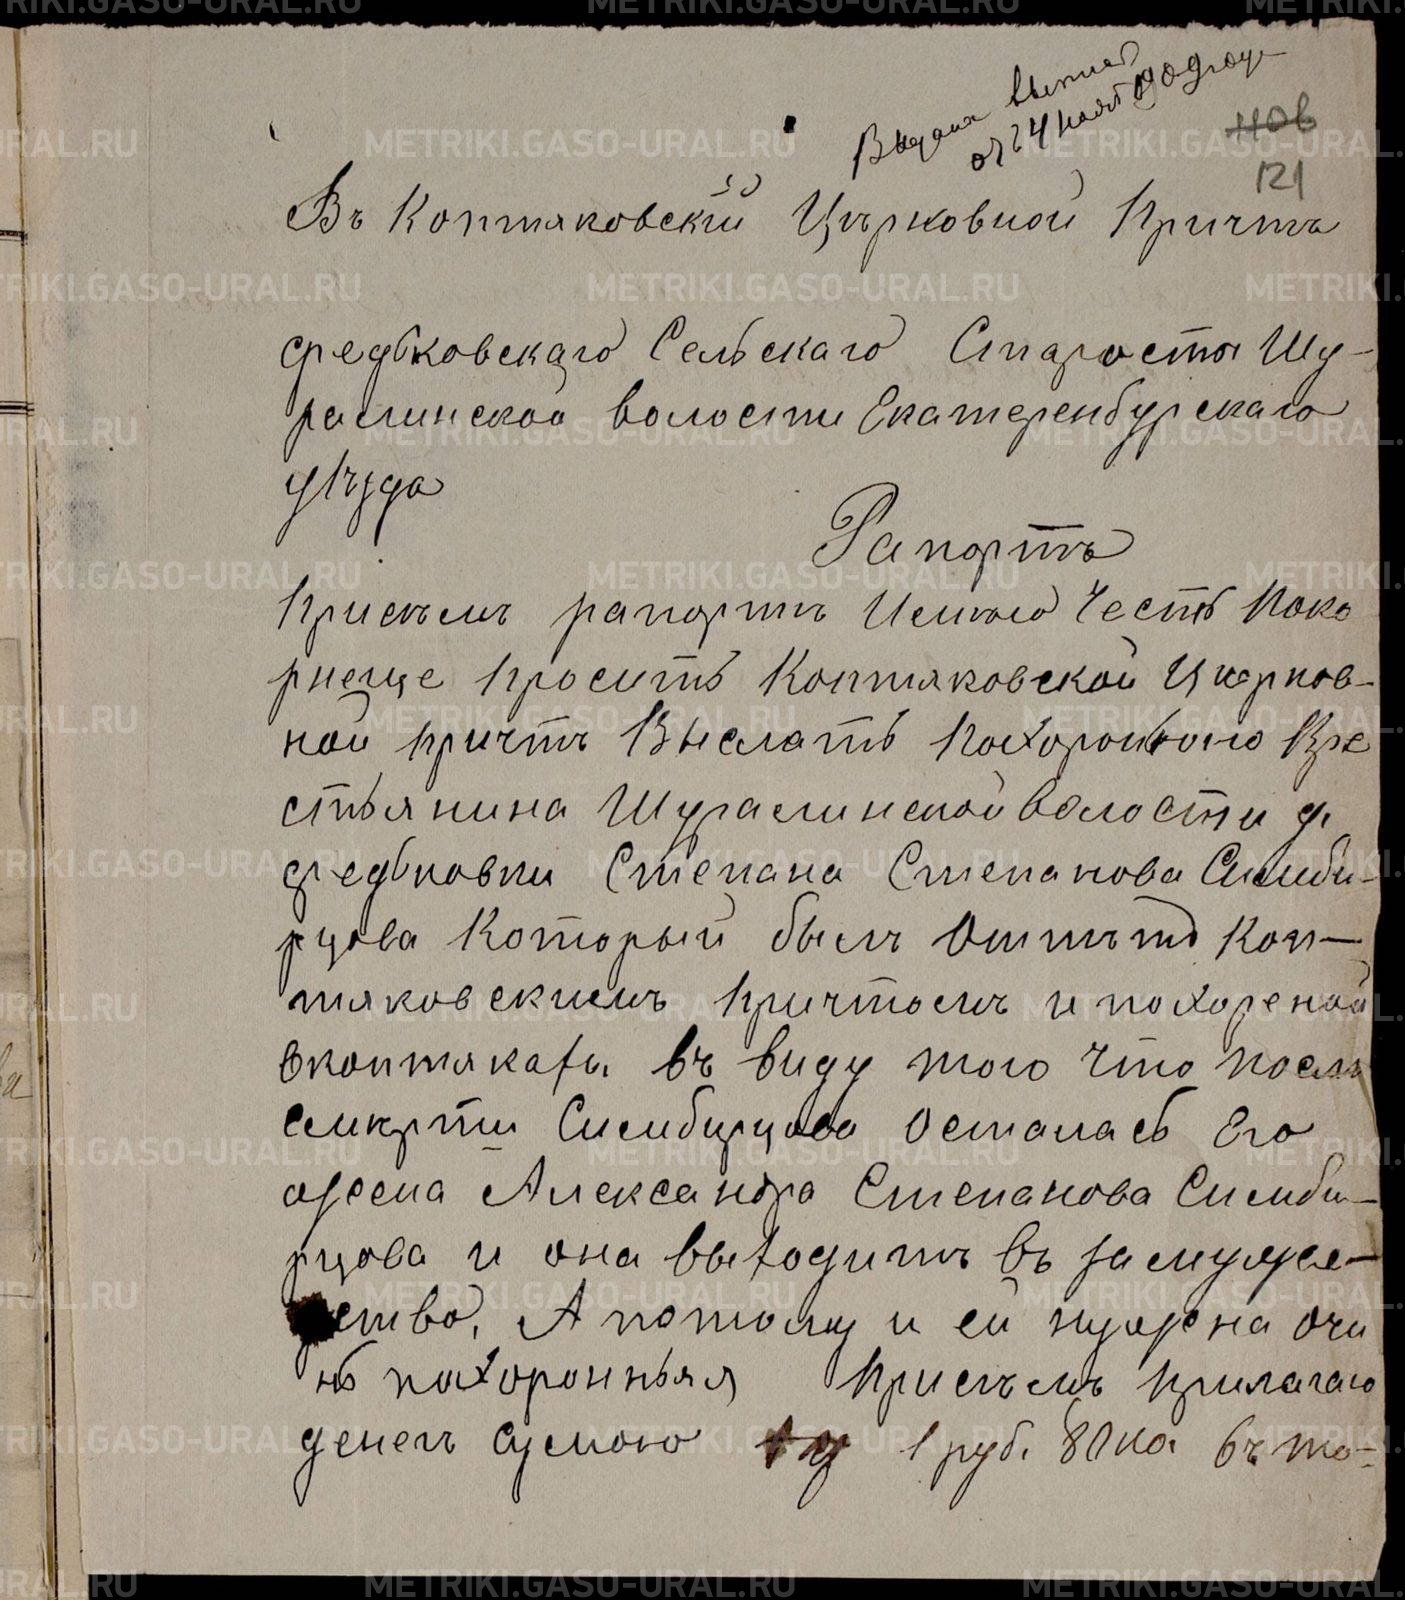 Выдана выпись
от 24 нояб
нов
121
Въ Коптяковскій Църковной Причтъ
Федьковскаго Сельскаго Старосты Шу-
ралинской волости Екатеренбурскаго
уѣзда
Рапортъ
Присѣмъ рапортъ Имѣю Честь Поко
рнеще Просить Коптяковской Цкерков-
ной Причтъ Выслать Похоронъною Кре
стьянина Шуралинской волости д.
Федьковки Степана Степанова Симби-
рцова Который былъ Отпѣтъ Коп-
тяковскимъ Причтомъ и похореной
вкоптякахъ въ виду того что послѣ
смерти Симбирцова Осталась Его
жена Александра Степанова Симби-
рцова и она выходитъ въ замуже-
ство, А потому и ей нужна очи
нь похоронныя Присѣмъ прилагаю
денегъ сумою 1 руб. 80 ко въ то-
METRIKI.GASO-URAL.RU